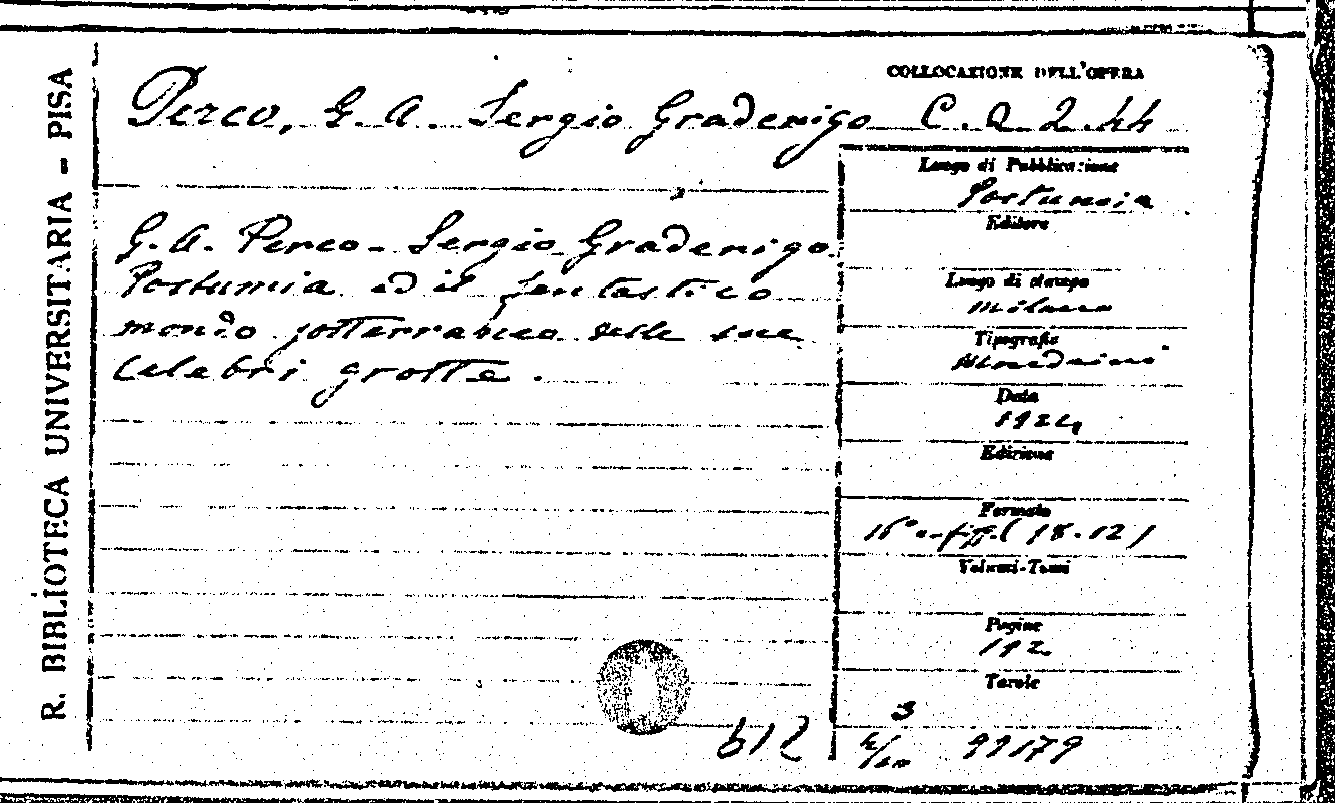 R. BIBLIOTECA UNIVERSITARIA - PISA
COLLOCAZIONE DELL'OPERA
Perco, G. A. Sergio Gradenigo C. Q. 2.44
Luogo di Pubblicazione
Postumia
Editore
G. A. Perco - Sergio Gradenigo.
Postumia ed il fantastico
mondo sotterraneo delle sue
celebri grotte.
Luogo di stampa
Milano
Tipografia
Data
1924
Edizione
Formato
16° fig. (18.12)
Volumi-Tomi
Pagine
192
Tavole
3
612
99179